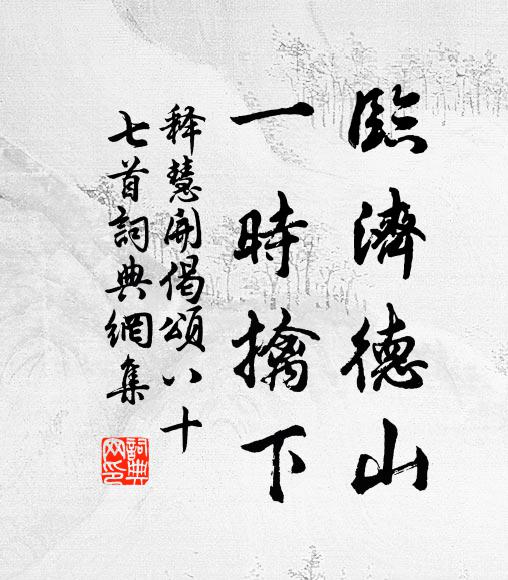 臨濟德山
一時擒下
释慧開偈頌八十
七首詞典網集
詞典網印